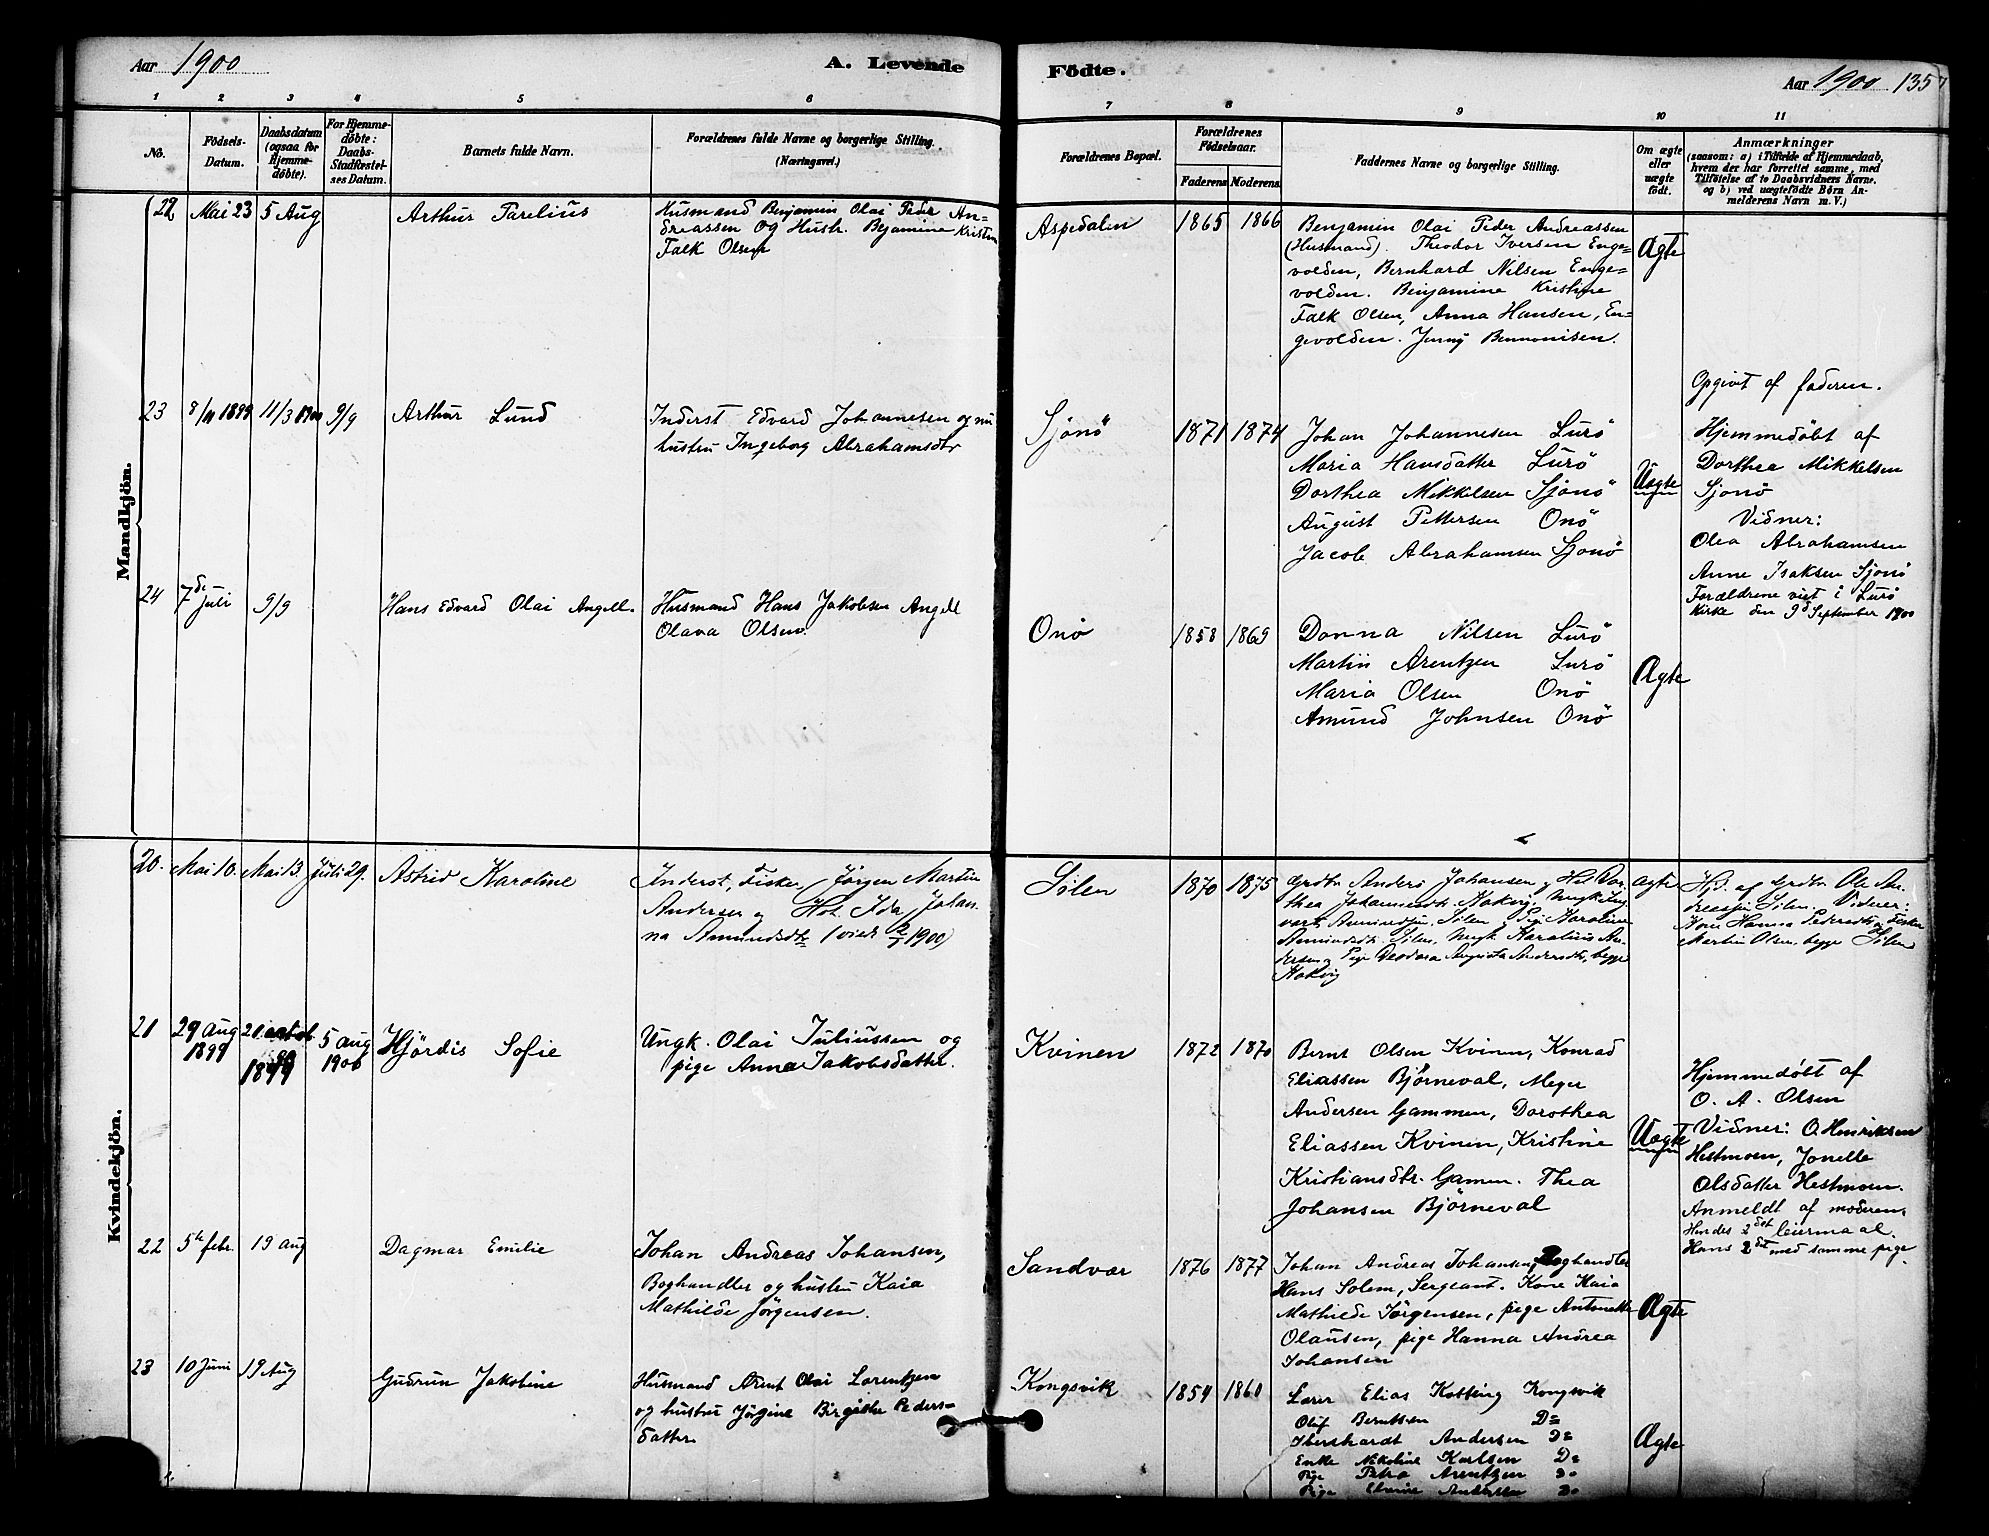 Aar 1900
A. Levende
Födte.
Aar 1900 135
1 2 3 4 5 6 7 8 9 10 11
No.
Födsels-
Datum.
Daabsdatum
(ogsaa for
Hjemme-
döbte).
For Hjemme-
döbte:
Daabs-
Stadfæstel-
ses Datum.
Barnets fulde Navn.
Forældrenes fulde Navne og borgerlige Stilling.
(Næringsvei.)
Forældrenes Bopæl.
Forældrenes
Födselsaar.
Faderens. Moderens.
Faddernes Navne og borgerlige Stilling.
Om ægte
eller
uægte
födt.
Anmærkninger
(saasom: a) i Tilfælde af Hjemmedaab,
hvem der har forrettet samme, med
Tilföielse af to Daabsvidners Navne.
og b) ved uægtefödte Börn An-
melderens Navn m. V.)
Mandkjön.
22 Mai 23 5 Aug Arthur Parelius
Husmand Benjamin Olai Peder An-
dreassen og Hustr. Bejamine Kristin
Falk Olsen
Aspedalen 1865 1866
Benjamin Olai Peder Andreassen
(Husmand). Theodor Iversen Enge=
volden, Bernhard Nilsen Enge=
volden. Benjamine Kristine
Falk Olsen, Anna Hansen, En=
gevolden. Jenny Bennonisen.
Ægte
23 8/11 1899 11/3 1900 9/9 Arthur Lund
Inderst Edvard Johannesen og nu
hustru Ingeborg Abrahamsdtr
Sjonö 1871 1874
Johan Johannesen Lurö
Maria Hansdatter Lurö
Dorthea Mikkelsen Sjonö
August Pettersen Onö
Jacob Abrahamsen Sjonö
Uægte
Opgivt af faderen.
Hjemmedøbt af
Dorthea Mikkelsen
Sjonö
Vidner:
Olea Abrahamsen
Anne Isaksen Sjonö
Forældrene viet i Lurö
Kirke den 9d September 1900
24 7de juli 9/9 Hans Edvard Olai Angell.
Husmand Hans Jakobsen Angell
Olava Olsen.
Onö 1858 1869
Donna Nilsen Lurö
Martin Arentzen Lurö
Maria Olsen Onö
Amund Johnsen Onö
Ægte
Kvindekjön.
20. Mai 10. Mai 13. Juli 29. Astrid Karoline
Inderst, Fisker Jørgen Martin
Andersen og Hst. Ida Johan
na Amundsdtr (viet 2/7 1900)
Sölen 1870 1875
Grdbr Anders Johansen og Hst Dor.
thea Johannesdtr Kakvig, Ungk Ing
vart Amundsen, Sölen, Pige Karoline
Amundsdtr. Sölen, Ungk Karolius An
dersen og Pige Theodora Augusta Andersdtr, begge
Kakvig
Ægte
Hjd. af Grdbr Ole An-
dreassen Sölen. Vidner:
Kone Hanna Pedersdtr og Fisker
Martin Olsen, begge Sölen
21 29 Aug 1899 21 octob 1899 5 aug 1900 Hjördis Sofie
Ungk. Olai Juliussen og
pige Anna Jakobsdatter.
Kvinen 1872 1870
Bernt Olsen Kvinen, Konrad
Eliassen Bjørneval, Meyer
Andersen Gammen, Dorothea
Eliassen Kvinen, Kristine
Kristiansdtr. Gamen. Thea
Johansen Bjørneval
Uægte
Hjemmedøbt af
O. A. Olsen
Vidner: O. Henriksen
Hestmoen, Jonelle
Olsdatter Hestmoen.
Anmeldt af moderen,
Hendes 2det leiermaal.
Hans 2det med samme pige.
22 5te febr. 19 aug Dagmar Emilie
Johan Andreas Johansen,
Boghandler og hustru Kaia
Mathilde Jørgensen.
Sandvær 1876 1877
Johan Andreas Johansen, Boghandler
Hans Solem, Sergeant. Kone Kaia
Mathilde Jørgensen, pige Antonette
Olausen, pige Hanna Andrea
Johansen
Ægte
23 10 Juni 19 Aug Gudrun Jakobine
Husmand Arent Olai Lorentzen
og hustru Jörgine Birgitte Peders=
datter
Kongsvik 1854 1860
Lærer Elias Kotteng Kongsvik
Oluf Berntsen Do
Ebershardt Andersen Do
Enke Nikoline Karlsen Do
Pige Petra Arentzen Do
Pige Andersen Do
Ægte